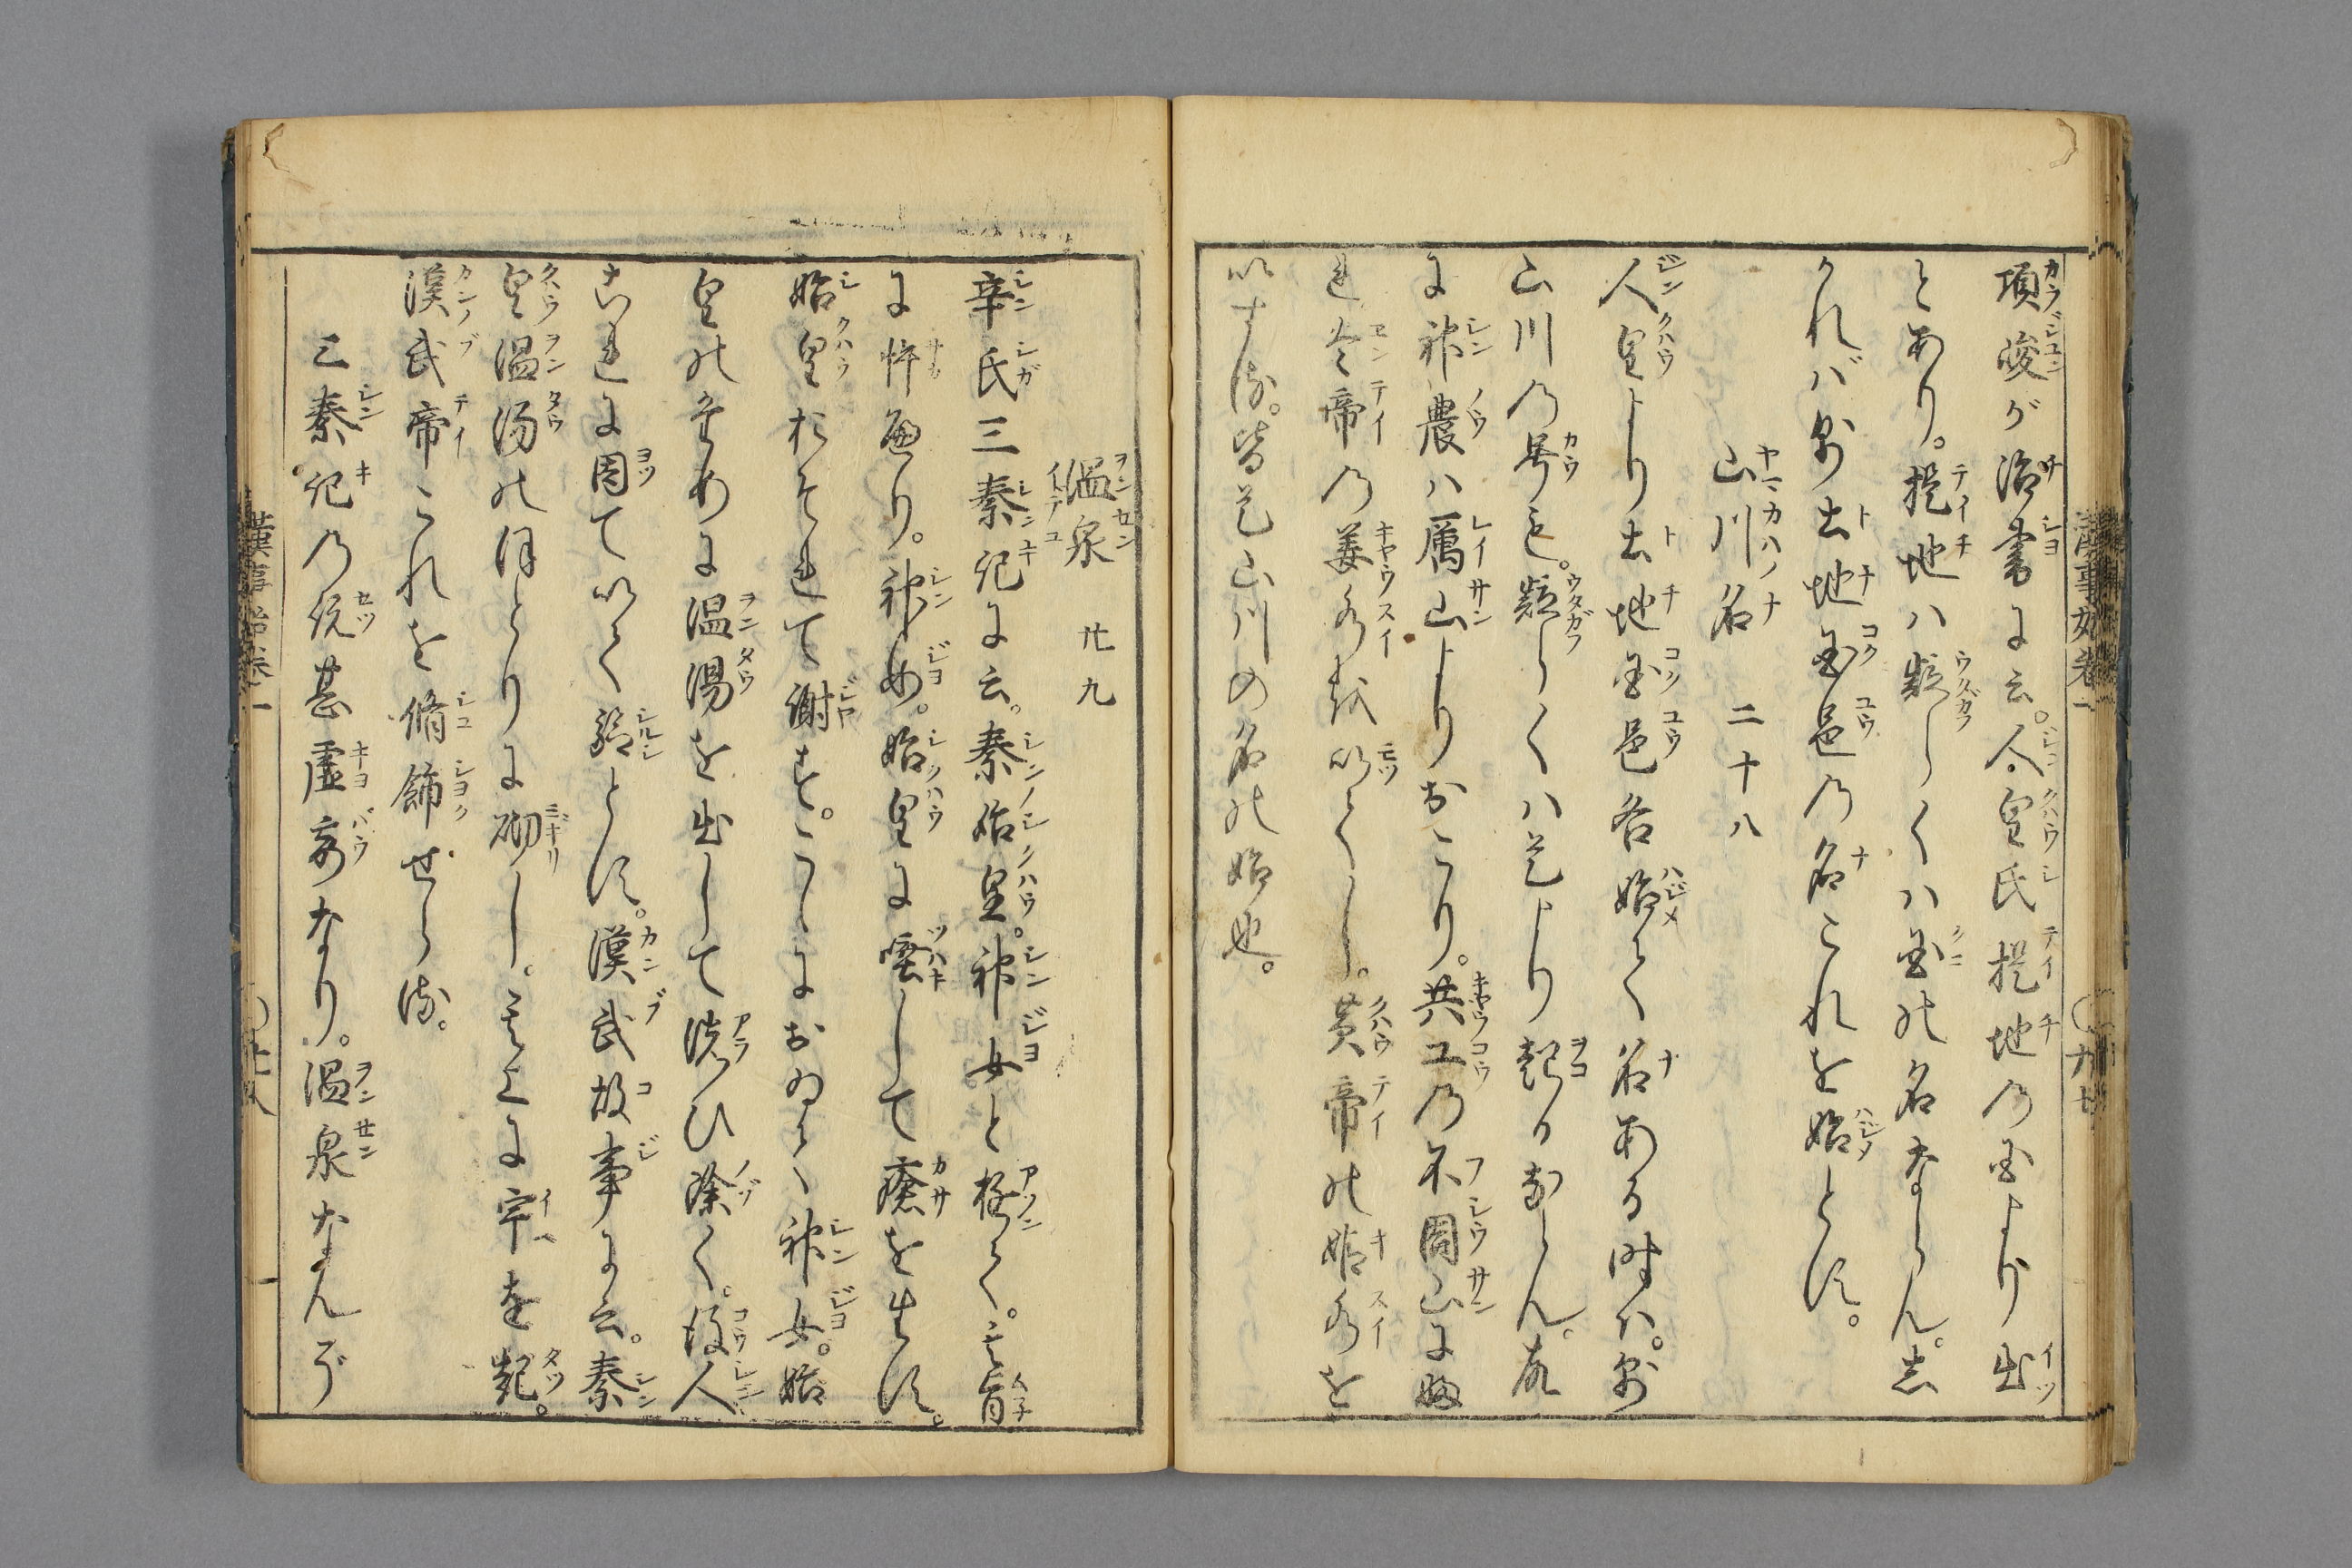 項峻が始書に云。人皇氏提地の国より出
とあり。提地ハ疑らくハ国の名ならん。志
かれバ則土地国邑の名これを始とす。
山川名 二十八
人皇より土地国邑各始て名ある時ハ。則
山川の号も。疑らくハ是より起るならん。故
に神農ハ厲山よりおこり。共工の不周山に触
れ炎帝の姜水を以てし。黄帝の姫水を
以する。皆是山川の名の始也。
温泉 廿九
辛氏三秦記に云。秦始皇。神女と遊て。其旨
に忤へり。神女。始皇に唾して瘡を生ず。
始皇おそれて謝す。こゝにおゐて神女。始
皇のために温湯を出して洗ひ除く。後人
これに因て以て験とす。漢武故事に云。秦
皇温湯のほとりに砌し。其上に宇を起。
漢武帝これを脩飾せらる。
三秦記の説甚虚妄なり。温泉なんぞ
漢事始巻一